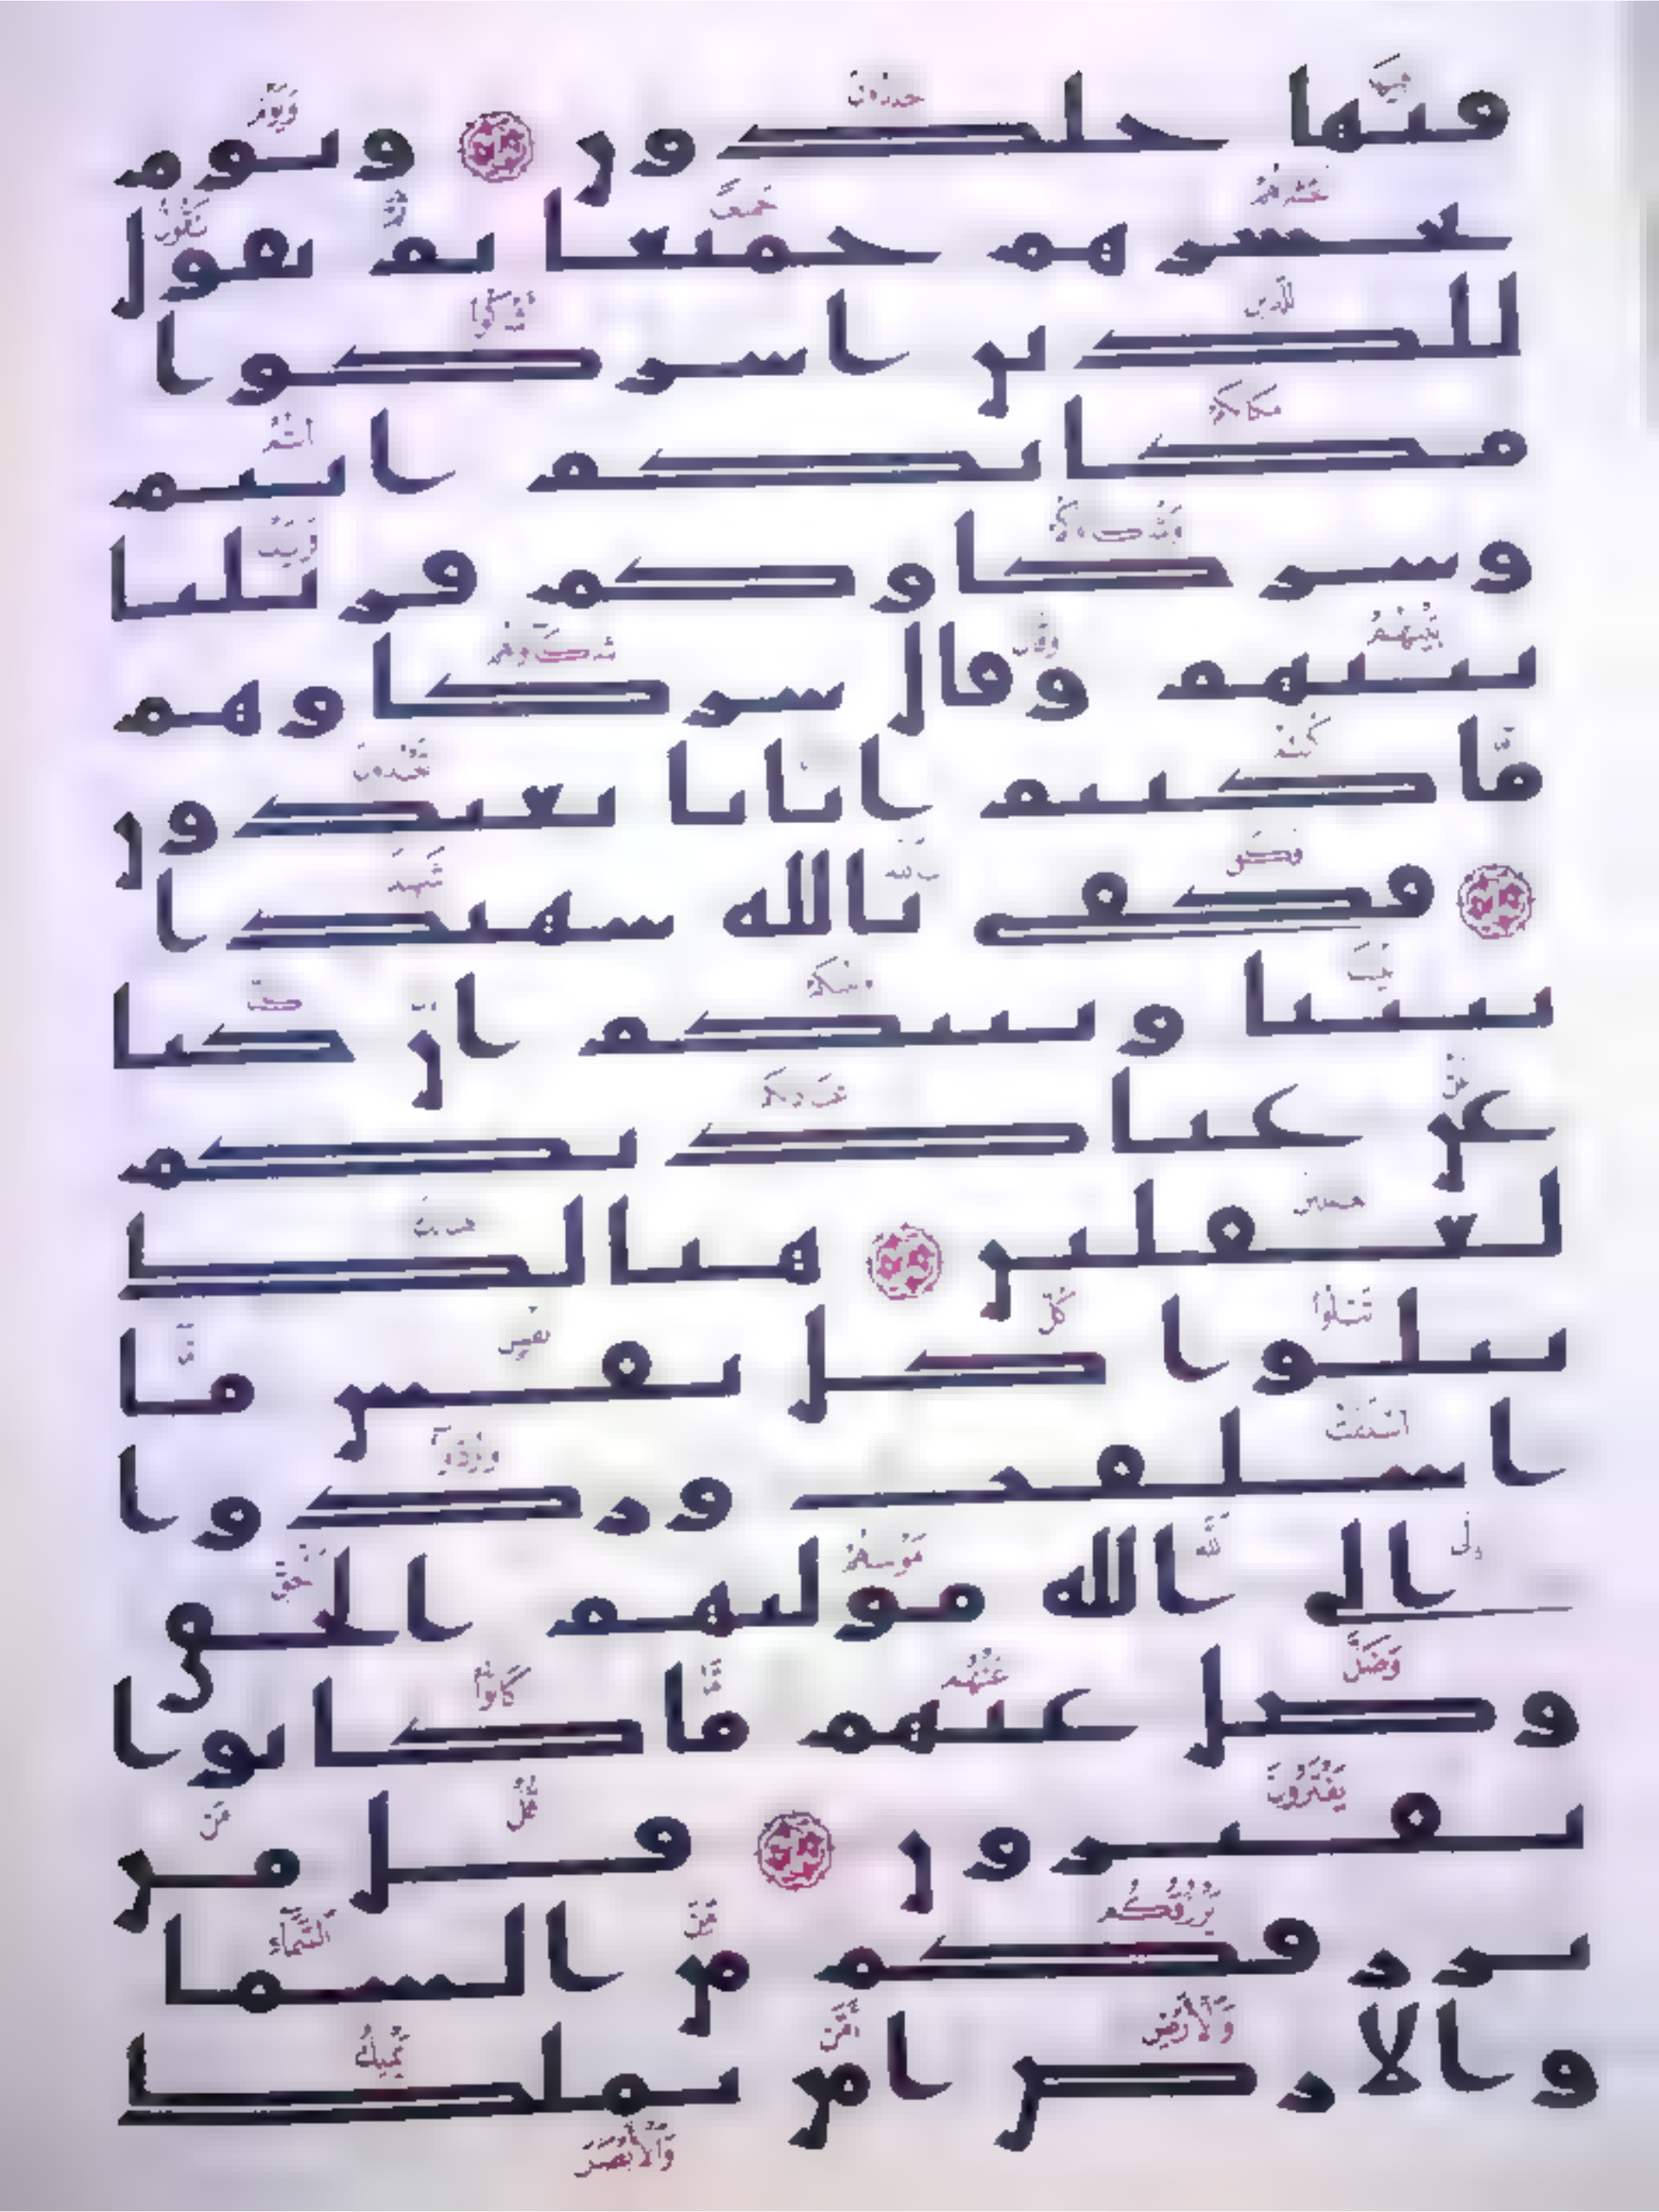 فيها خلدون ويوم
نحشرهم جميعا ثم نقول
للذين اشركوا
مكانكم انتم
وشركاوكم فزيلنا
بينهم وقال شركاوهم
ما كنتم ايانا تعبدون
فكفى بالله شهيدا
بيننا وبينكم ان كنا
عن عبادتكم
لغفلين هنالك
تبلوا كل نفس ما
اسلفت وردوا
الى الله موليهم الحق
وضل عنهم ما كانوا
يفترون قل من
يرزقكم من السما
والارض امن يملك
وَالْأَبْصَرَ